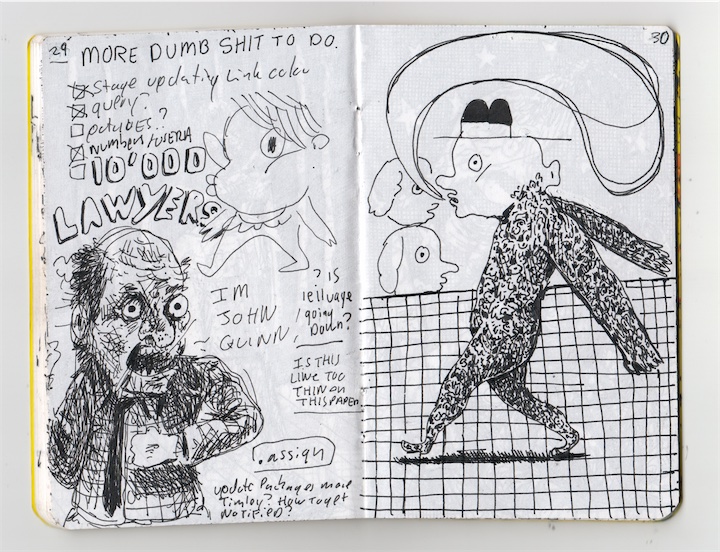 29
MORE DUMB SHIT TO DO.
Stage updating Link color
query?
numbers
10'000
LAWYERS
IM
JOHN
QUINN,
? IS
going
Down?
IS THIS
LINE TOO
THIN ON
THIS PAPER
.assign
update Packages more
Timley? How to get
Notified?
30